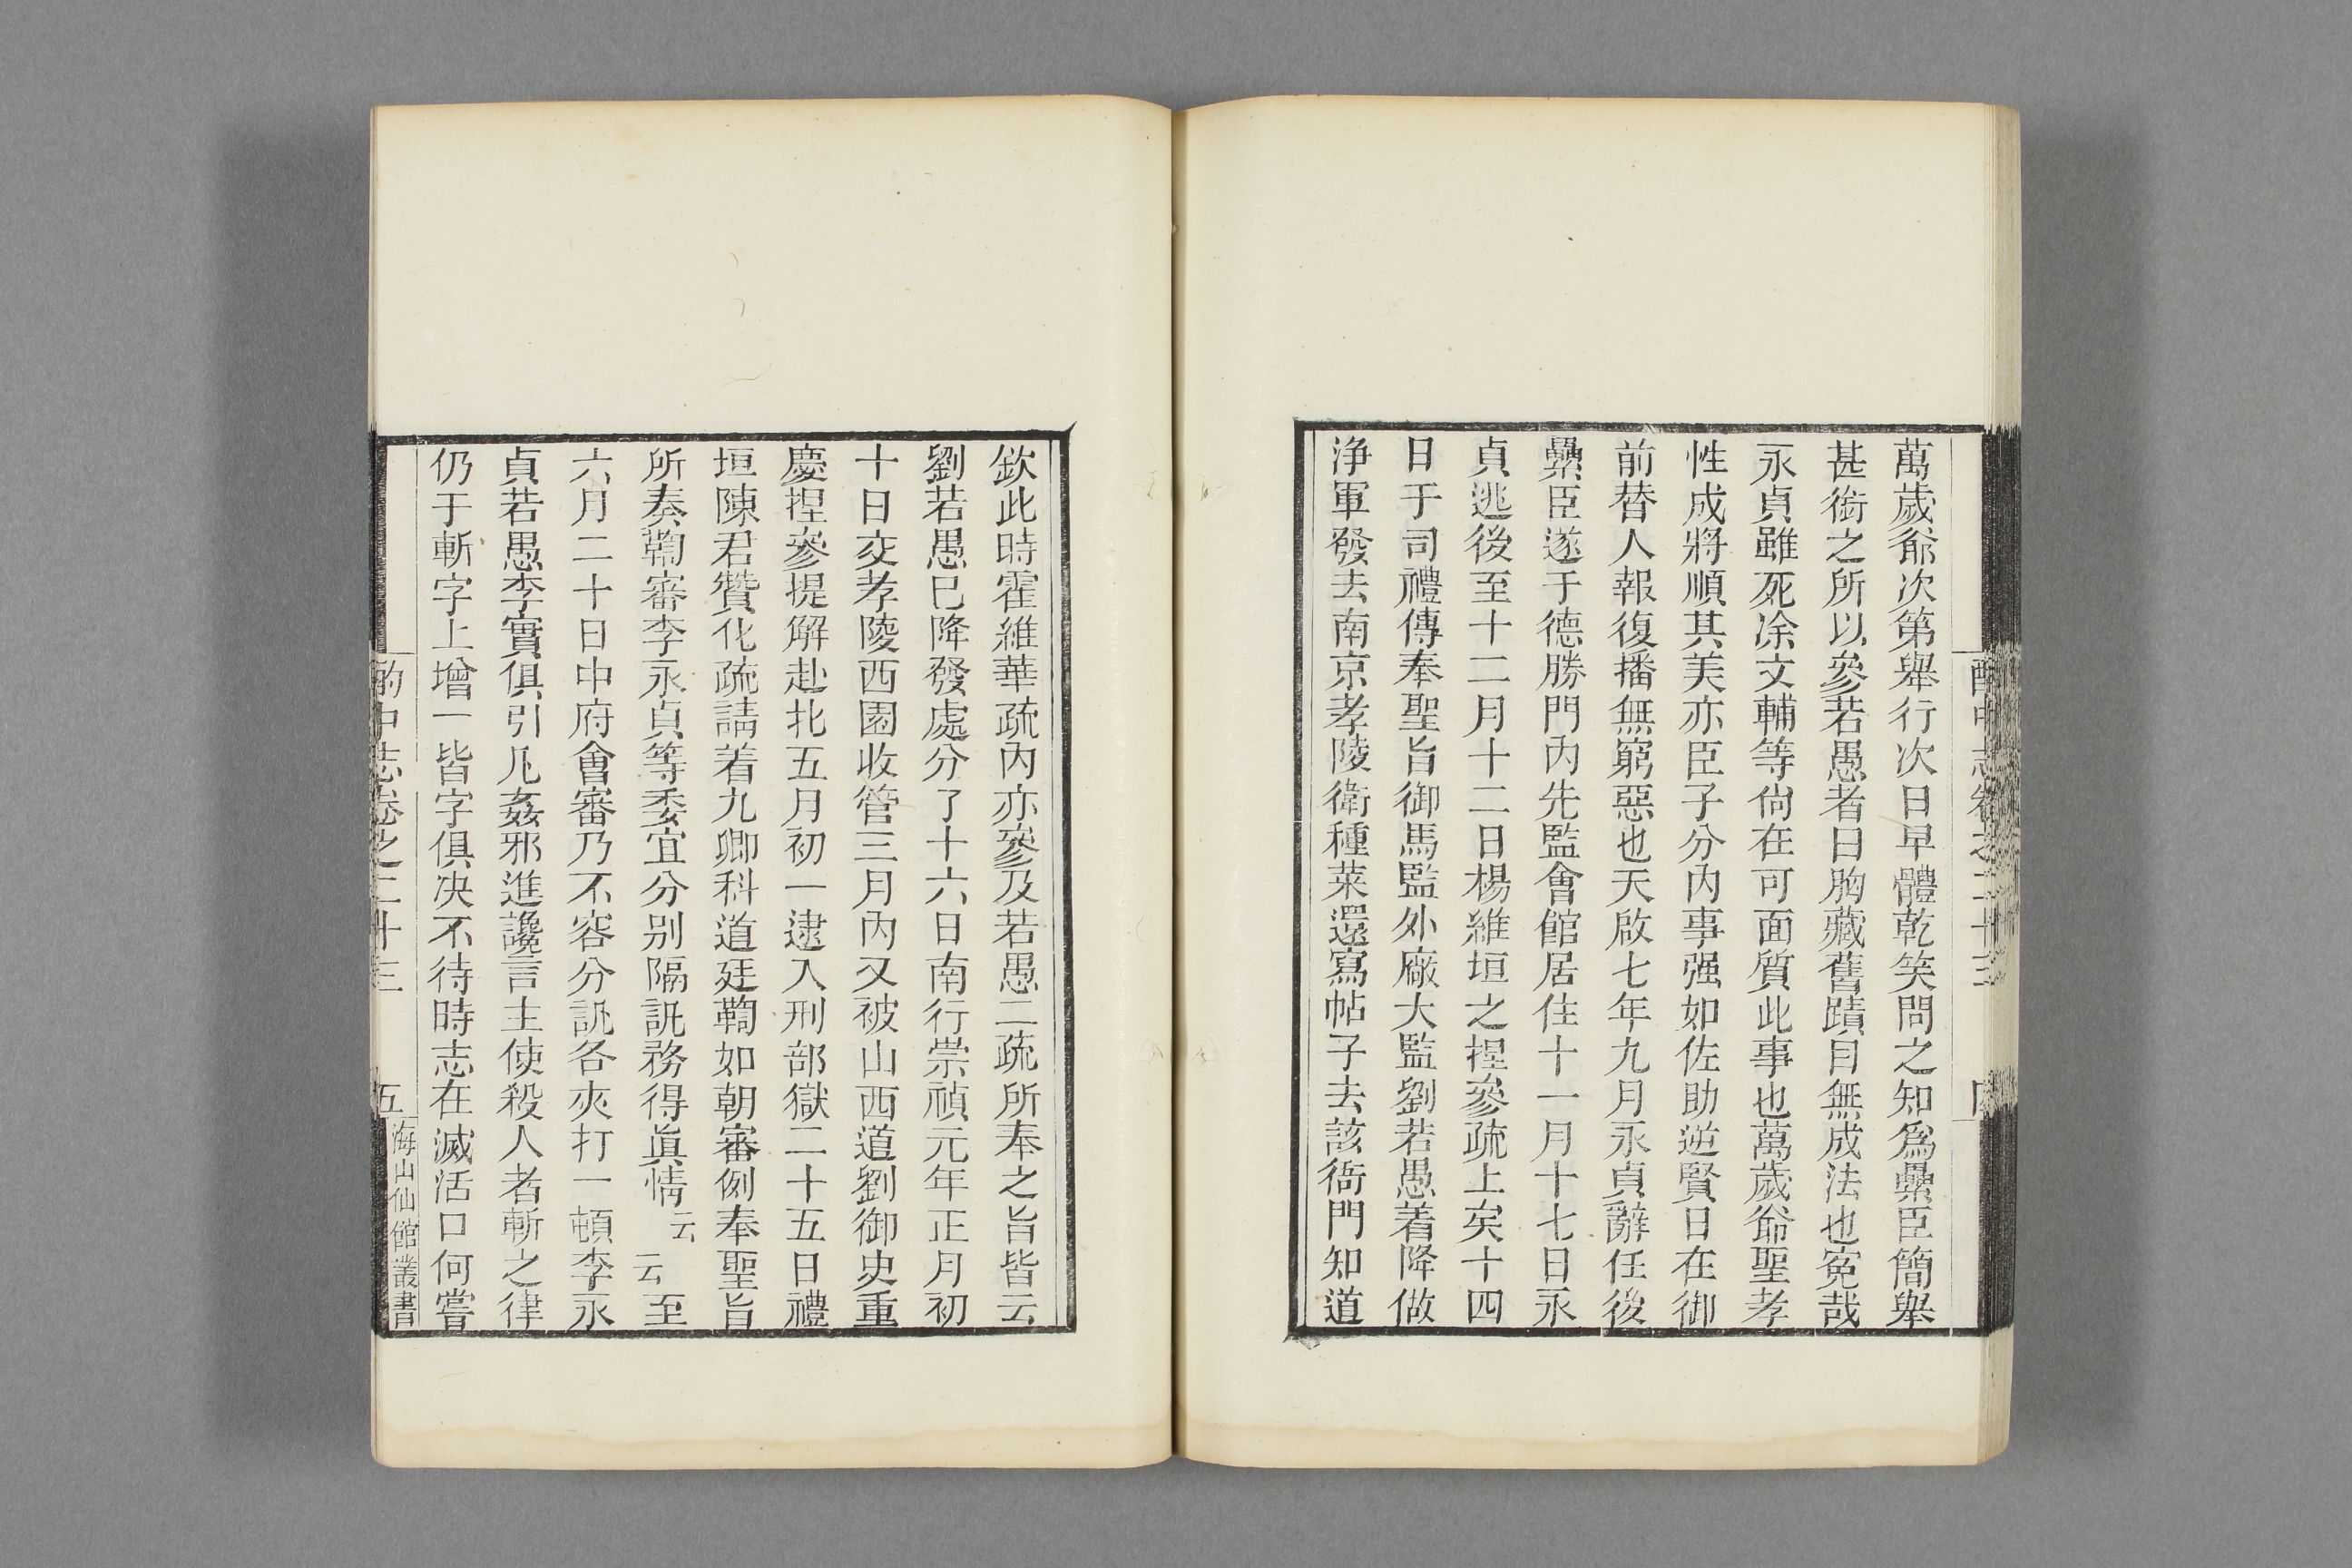 萬歲爺次第舉行次日早體乾笑問之知爲纍臣簡舉
甚銜之所以參若愚者曰胸藏舊蹟目無成法也寃哉
永貞雖死涂文輔等尙在可面質此事也萬歲爺聖孝
性成將順其美亦臣子分內事强如佐助逆賢日在御
前替人報復播無窮惡也天啟七年九月永貞辭任後
纍臣遂于德勝門內先監會館居住十一月十七日永
貞逃後至十二月十二日楊維垣之揑參疏上矣十四
日于司禮傳奉聖旨御馬監外廠大監劉若愚着降做
浄軍發去南京孝陵衛種菜還寫帖子去該衙門知道
欽此時霍維華疏內亦參及若愚二疏所奉之旨皆云
劉若愚已降發處分了十六日南行崇禎元年正月初
十日交孝陵西園收管三月內又被山西道劉御史重
慶揑參提解赴北五月初一逮入刑部獄二十五日禮
垣陳君贊化疏請着九卿科道廷鞫如朝審例奉聖旨
所奏鞫審李永貞等委宜分别隔訊務得眞情云云至
六月二十日中府會審乃不容分訊各夾打一頓李永
貞若愚李實俱引凡姦邪進讒言主使殺人者斬之律
仍于斬字上增一皆字俱决不待時志在滅活口何嘗
酌中志卷之二十三
五
海山仙館叢書